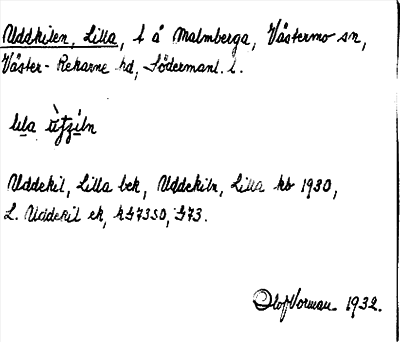 Uddkilen, Lilla, t å Malmberga, Västermo sn,
Väster-Rekarne hd, Södermanl. l.
lila
Uddekil, Lilla bek, Uddekiln, Lilla kb 1930,
L. Uddekil ek, h
Olof Vorman 1932.